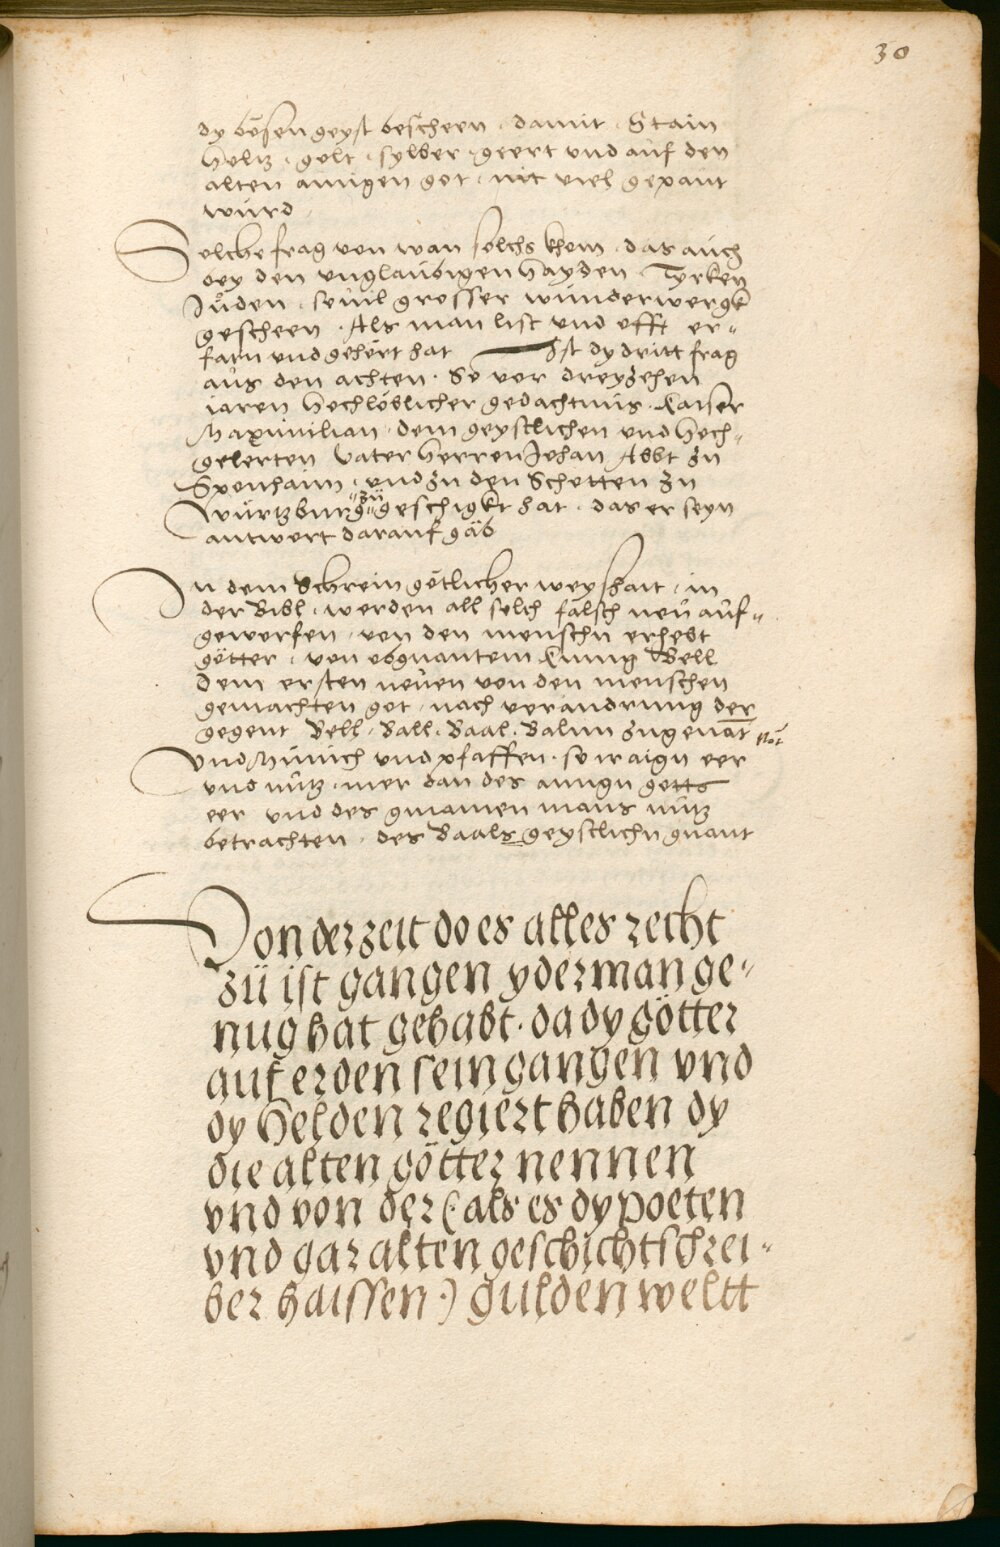 30
dy bösen geyst bescheen · damit · Stain
holtz · golt · sylber · geert vnd auf den
alten ainigen got · nit viel gepaut
würd
Solche frag von wan solchs khom · das auch
bey den vnglaubigen hayden · Tyrken
Jüden · souil grosser wunderwergk
gescheen · Als man list vnd offt er-
farn vnd gehört hat Ist dy dritt frag
aus den achten · So vor dreyzehen
iaren hochlöblicher gedachtnüs · Kaiser
Maximilian · dem geystlichen vnd hoch-
gelerten Vater herren Johan Abbt zu
Sponhaim · vnd zu den Schotten zu
Würtzburg zü geschigkt hat · das er seyn
antwort darauf gäb
In dem Schrein götlicher weyshait · in
der Bibl · werden all solch falsch neu auf-
geworfen · von den menschn erhebt
götter · von obgnantem Kunig Bell
dem ersten neuen von den menschen
gemachten got · nach verandrung der
gegent Bell · Ball · Baal · Balim zugenāt
Vnd Münich vnd pfaffen · so ir aign eer
vnd nutz · mer dan des ainign gotts
eer vnd des gmainen mans nutz
betrachten · des Baals geystlichn gnant
Von der zeit do es alles recht
zü ist gangen yderman ge-
nug hat gehabt · da dy götter
auf erden sein gangen vnd
dy helden regiert haben dy
die alten götter nennen
vnd von der (als es dy poeten
vnd gar alten geschichtschrei-
ber haissen·) gulden weltt